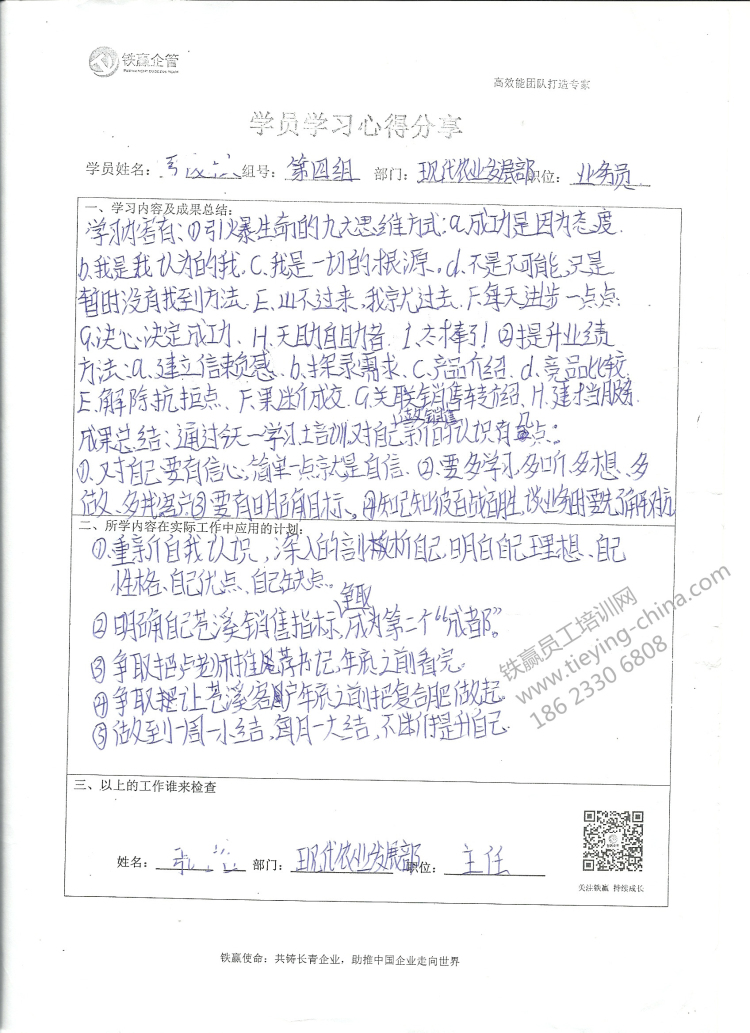 铁赢企管
高效能团队打造专家
学员学习心得分享
学员姓名： 组号：第四组 部门：现代农业发展部 职位：业务员
一、学习内容及成果总结：
学习内容有：①引爆生命的九大思维方式：a.成功是因为态度.
b.我是我认为的我.C.我是一切的根源。d.不是不可能，只是
暂时没有找到方法.E.山不过来，我就过去.F.每天进步一点点.
G.决心决定成功、H.天助自助者.I.太棒了！②提升业绩
方法：a.建立信赖感.b.探录需求.C.产品介绍.d.竞品比较
E.解除抗拒点、F.果断成交.G.关联销售转介绍、H.建档服务.
做销售
成果总结：通过今天一学习土培训又对自己新的认识有几点：
①.对自己要有信心，简单一点就是自信.②.要多学习、多听、多想、多
做、多找客户③要有明确目标、④知己知彼百战百胜，谈业务时要先了解对方
二、所学内容在实际工作中应用的计划：
①.重新自我认识，深入的剖析自己，明白自己理想、自己
性格、自己优点、自己缺点。
②明确自己苍溪销售指标，争取成为第二个“成都”。
③争取把卢老师推荐书记，年底之前看完.
④争取让苍溪客户年底之前把复合肥做起.
⑤做到一周一小结，每月一大结，不断提升自己.
三、以上的工作谁来检查
姓名： 部门：现代农业发展部 职位：主任
关注铁赢 持续成长
铁赢使命：共铸长青企业，助推中国企业走向世界
铁赢员工培训网
www.tieying-china.com
186 2330 6808